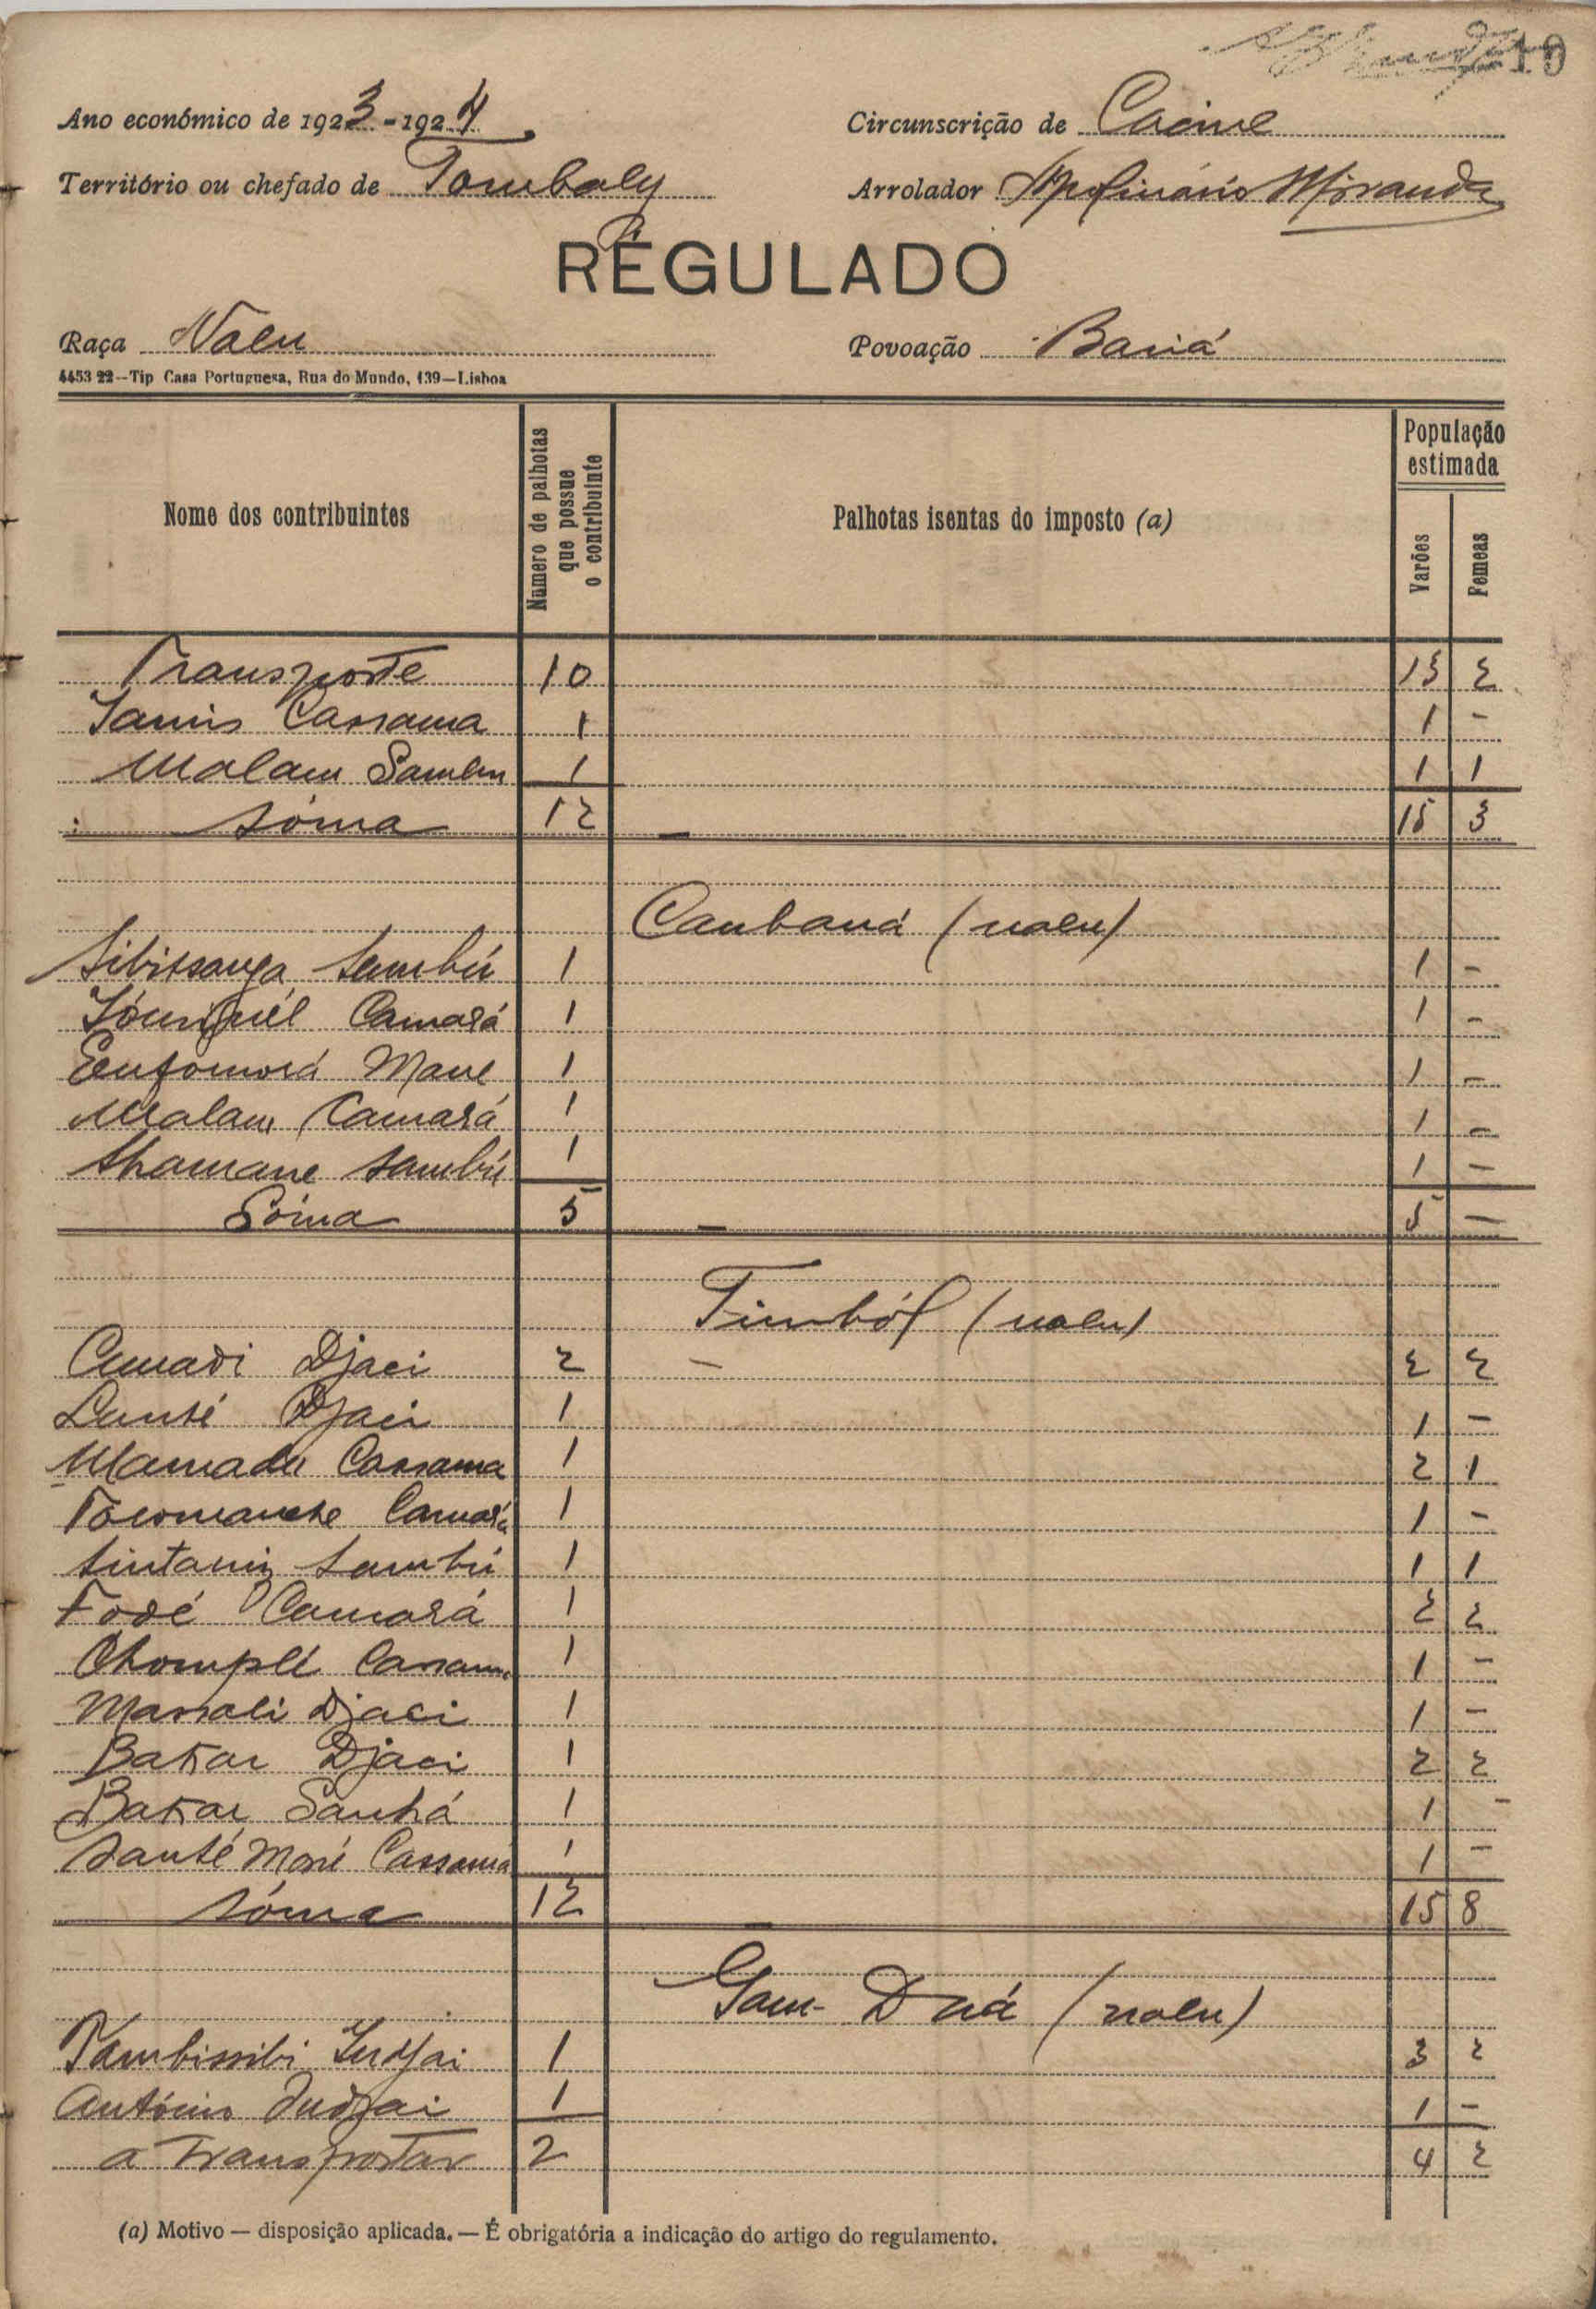 10
Ano económico de 1923-1924 Circunscrição de Cacine
Território ou chefado de Tombaly Arrolador Apolinário Miranda
REGULADO
Raça Nalu Povoação Baniá
4453 22--Tip Casa Portuguesa, Rua do Mundo, 139—Lisboa
Nome dos contribuintes Número de palhotas que possue o contribuinte Palhotas isentas do imposto (a) População estimada Varões Femeas
Transporte 10 13 2
Iamis Cassama 1 1 -
Malam Sambu 1 1 1
Sóma 12 — 15 3
Canbaná (nalu)
Sibissanga Sambú 1 1 -
Camará 1 1 -
Mane 1 1 -
Malam Camará 1 1 -
Shamane Sambú 1 1 -
Sóma 5 — 5 -
Timból (nalu)
Amadi Djaci 2 - 2 2
Lansé Djaci 1 1 -
Mamadu Cassama 1 2 1
Tocomanche Camará 1 1 -
Sintanin Sambú 1 1 1
Fodé Camará 1 2 2
Chomplé Cassama 1 1 -
Massali Djaci 1 1 -
Bakar Djaci 1 2 2
Bakar Sanhá 1 1 -
Santé Moré Cassamá 1 1 -
Sóma 12 — 15 8
Gam-Duá (nalu)
Tambissibi Indjai 1 3 2
António Indjai 1 1 -
a transportar 2 4 2
(a) Motivo — disposição aplicada. — É obrigatória a indicação do artigo do regulamento.